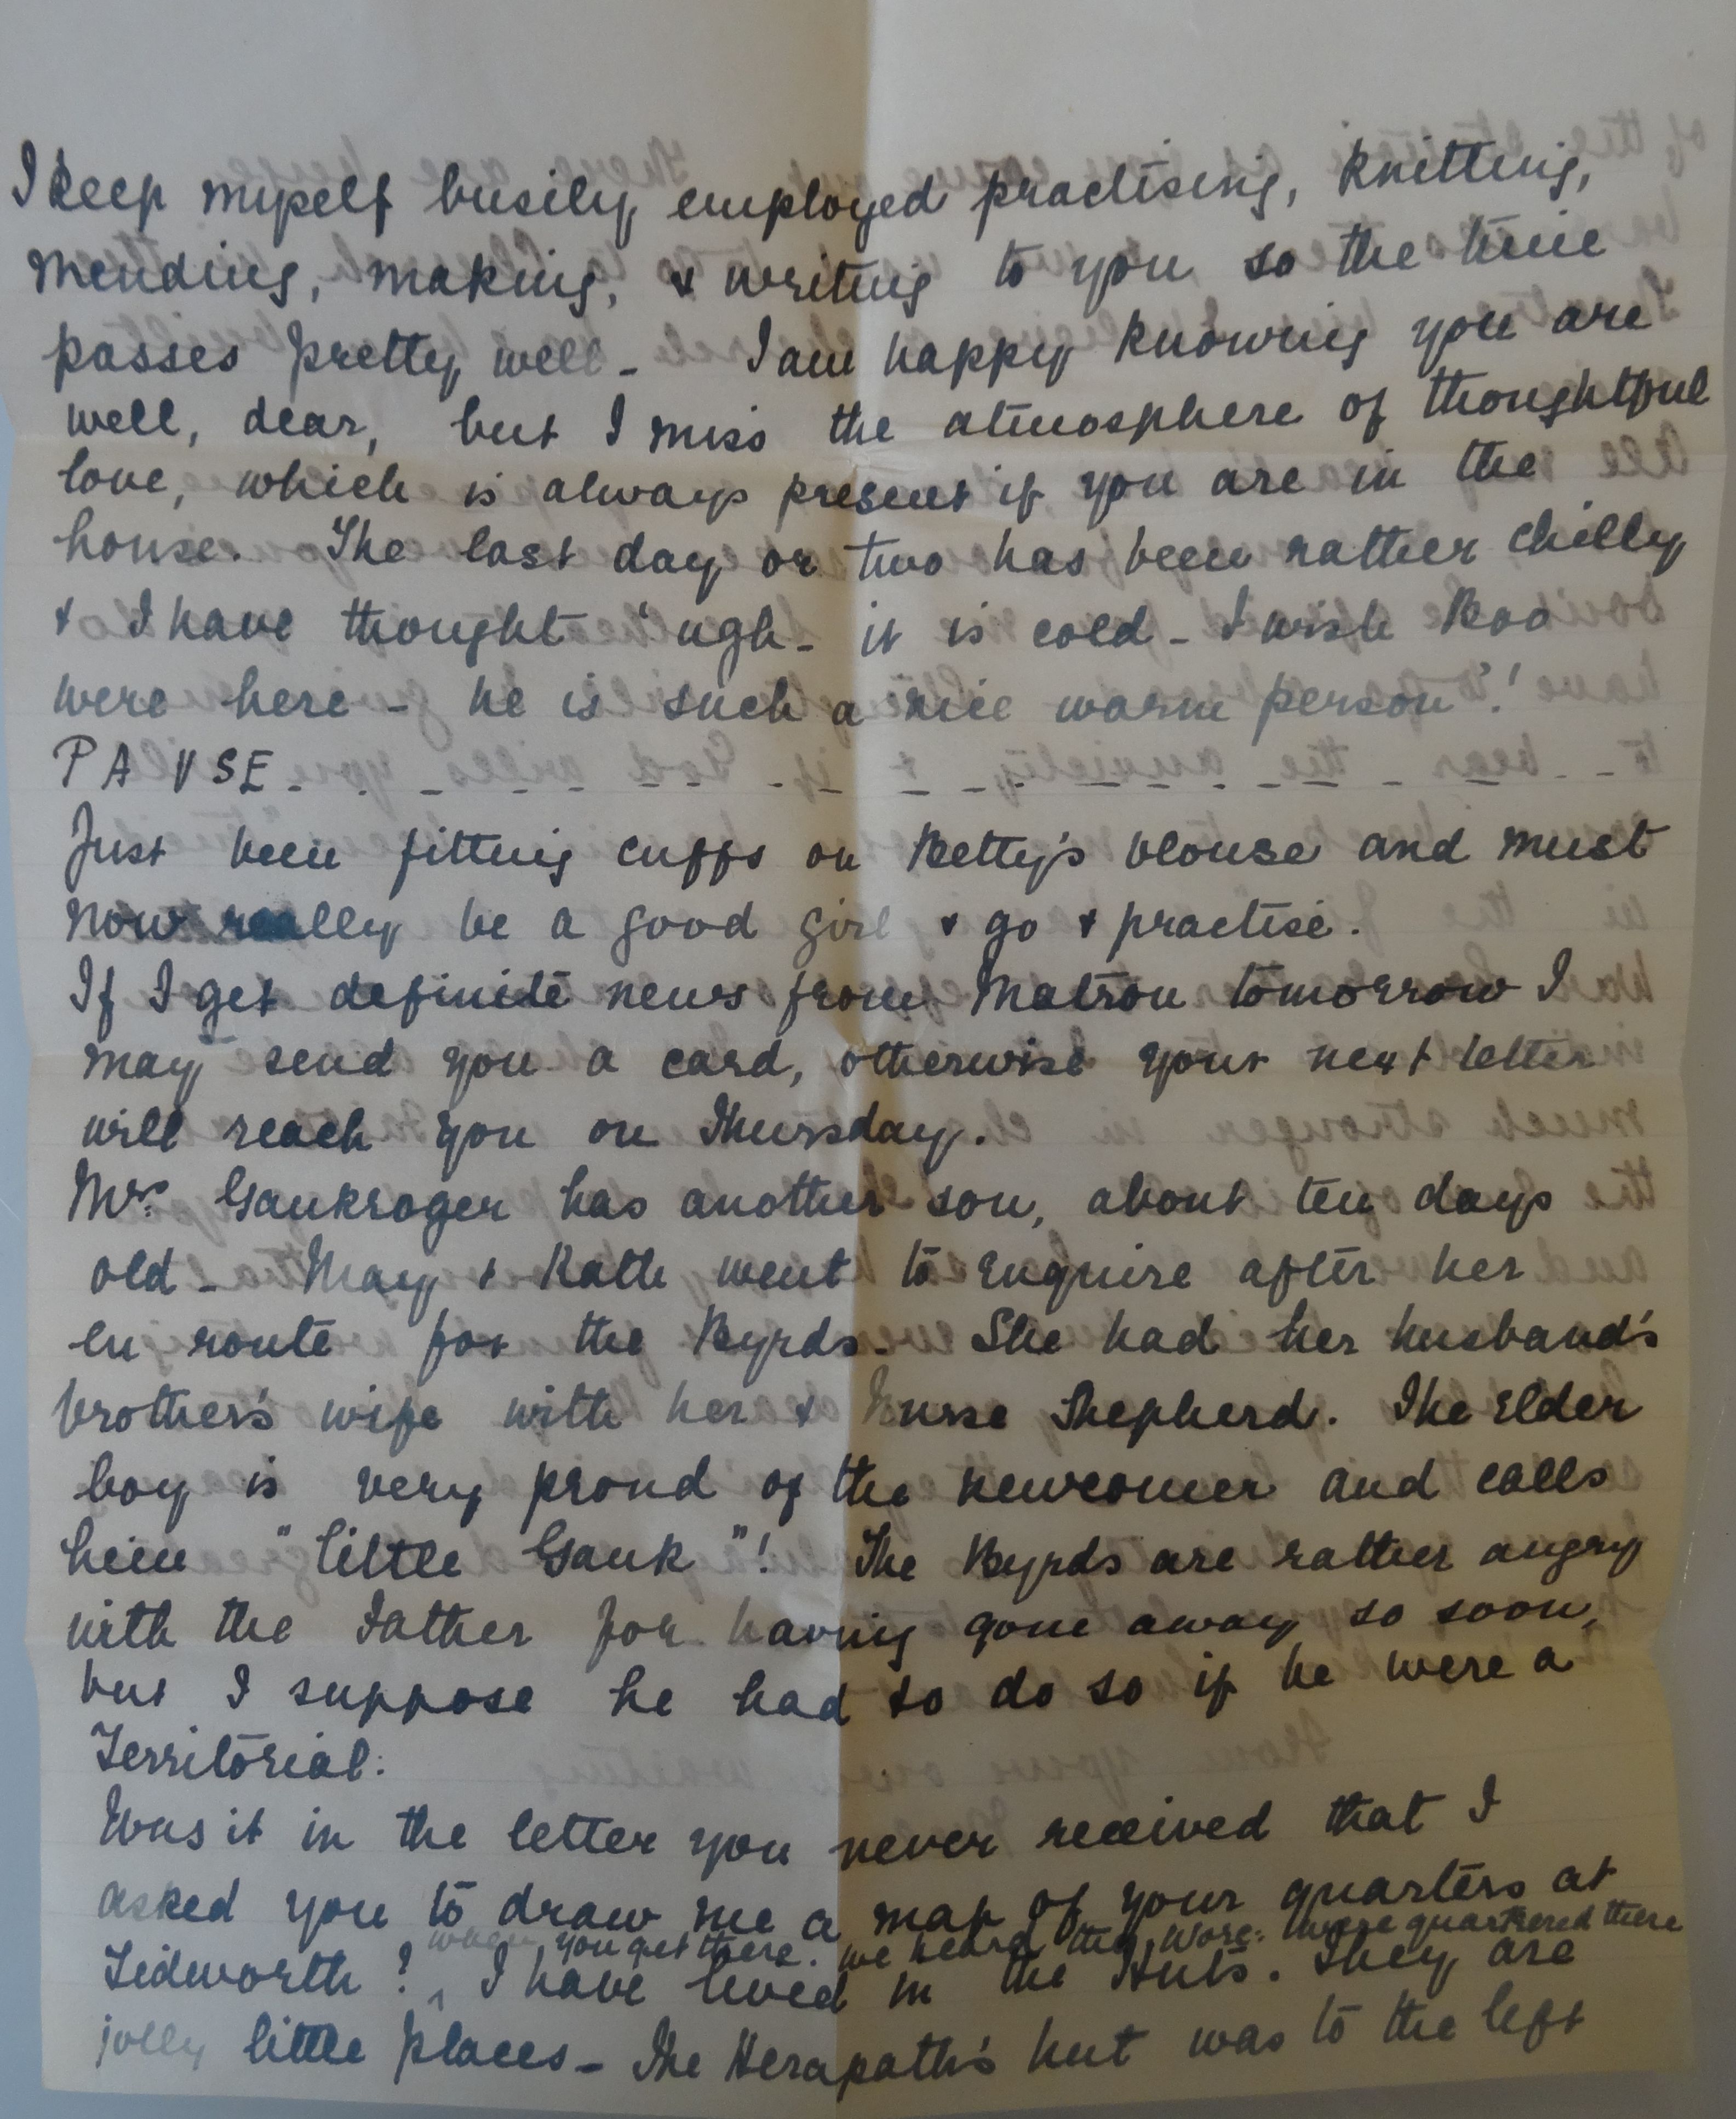 I keep myself busily employed practising, knitting,
mending, making, & writing to you so the time
passes pretty well - I am happy knowing you are
well, dear, but I miss the atmosphere of thoughtful
love, which is always present if you are in the
house. The last day or two has been rather chilly
& I have thought 'ugh - it is cold - I wish Boo
were here - he is such a nice warm person'!
PAUSE - - - - - - - - - - - - - - - - - -
Just been fitting cuffs on Betty's blouse and must
now really be a good girl & go & practise.
If I get definite news from Matron tomorrow I
may send you a card, otherwise your next letter
will reach you on Thursday.
Mrs. Gaukroger has another son, about ten days
old - May & Kath went to enquire after her
en route for the Byrds. She had her husband's
brother's wife with her & Nurse Shepherd. The elder
boy is very proud of the newcomer and calls
him "little Gauk"! The Byrds are rather angry
with the Father for having gone away so soon,
but I suppose he had to do so if he were a
Territorial.
Was it in the letter you never received that I
asked you to draw me a map of your quarters at
when you get there. We heard the Worc: were quartered there
Tidworth? ^ I have lived in the Huts. They are
jolly little places - The Herapath's hut was to the left